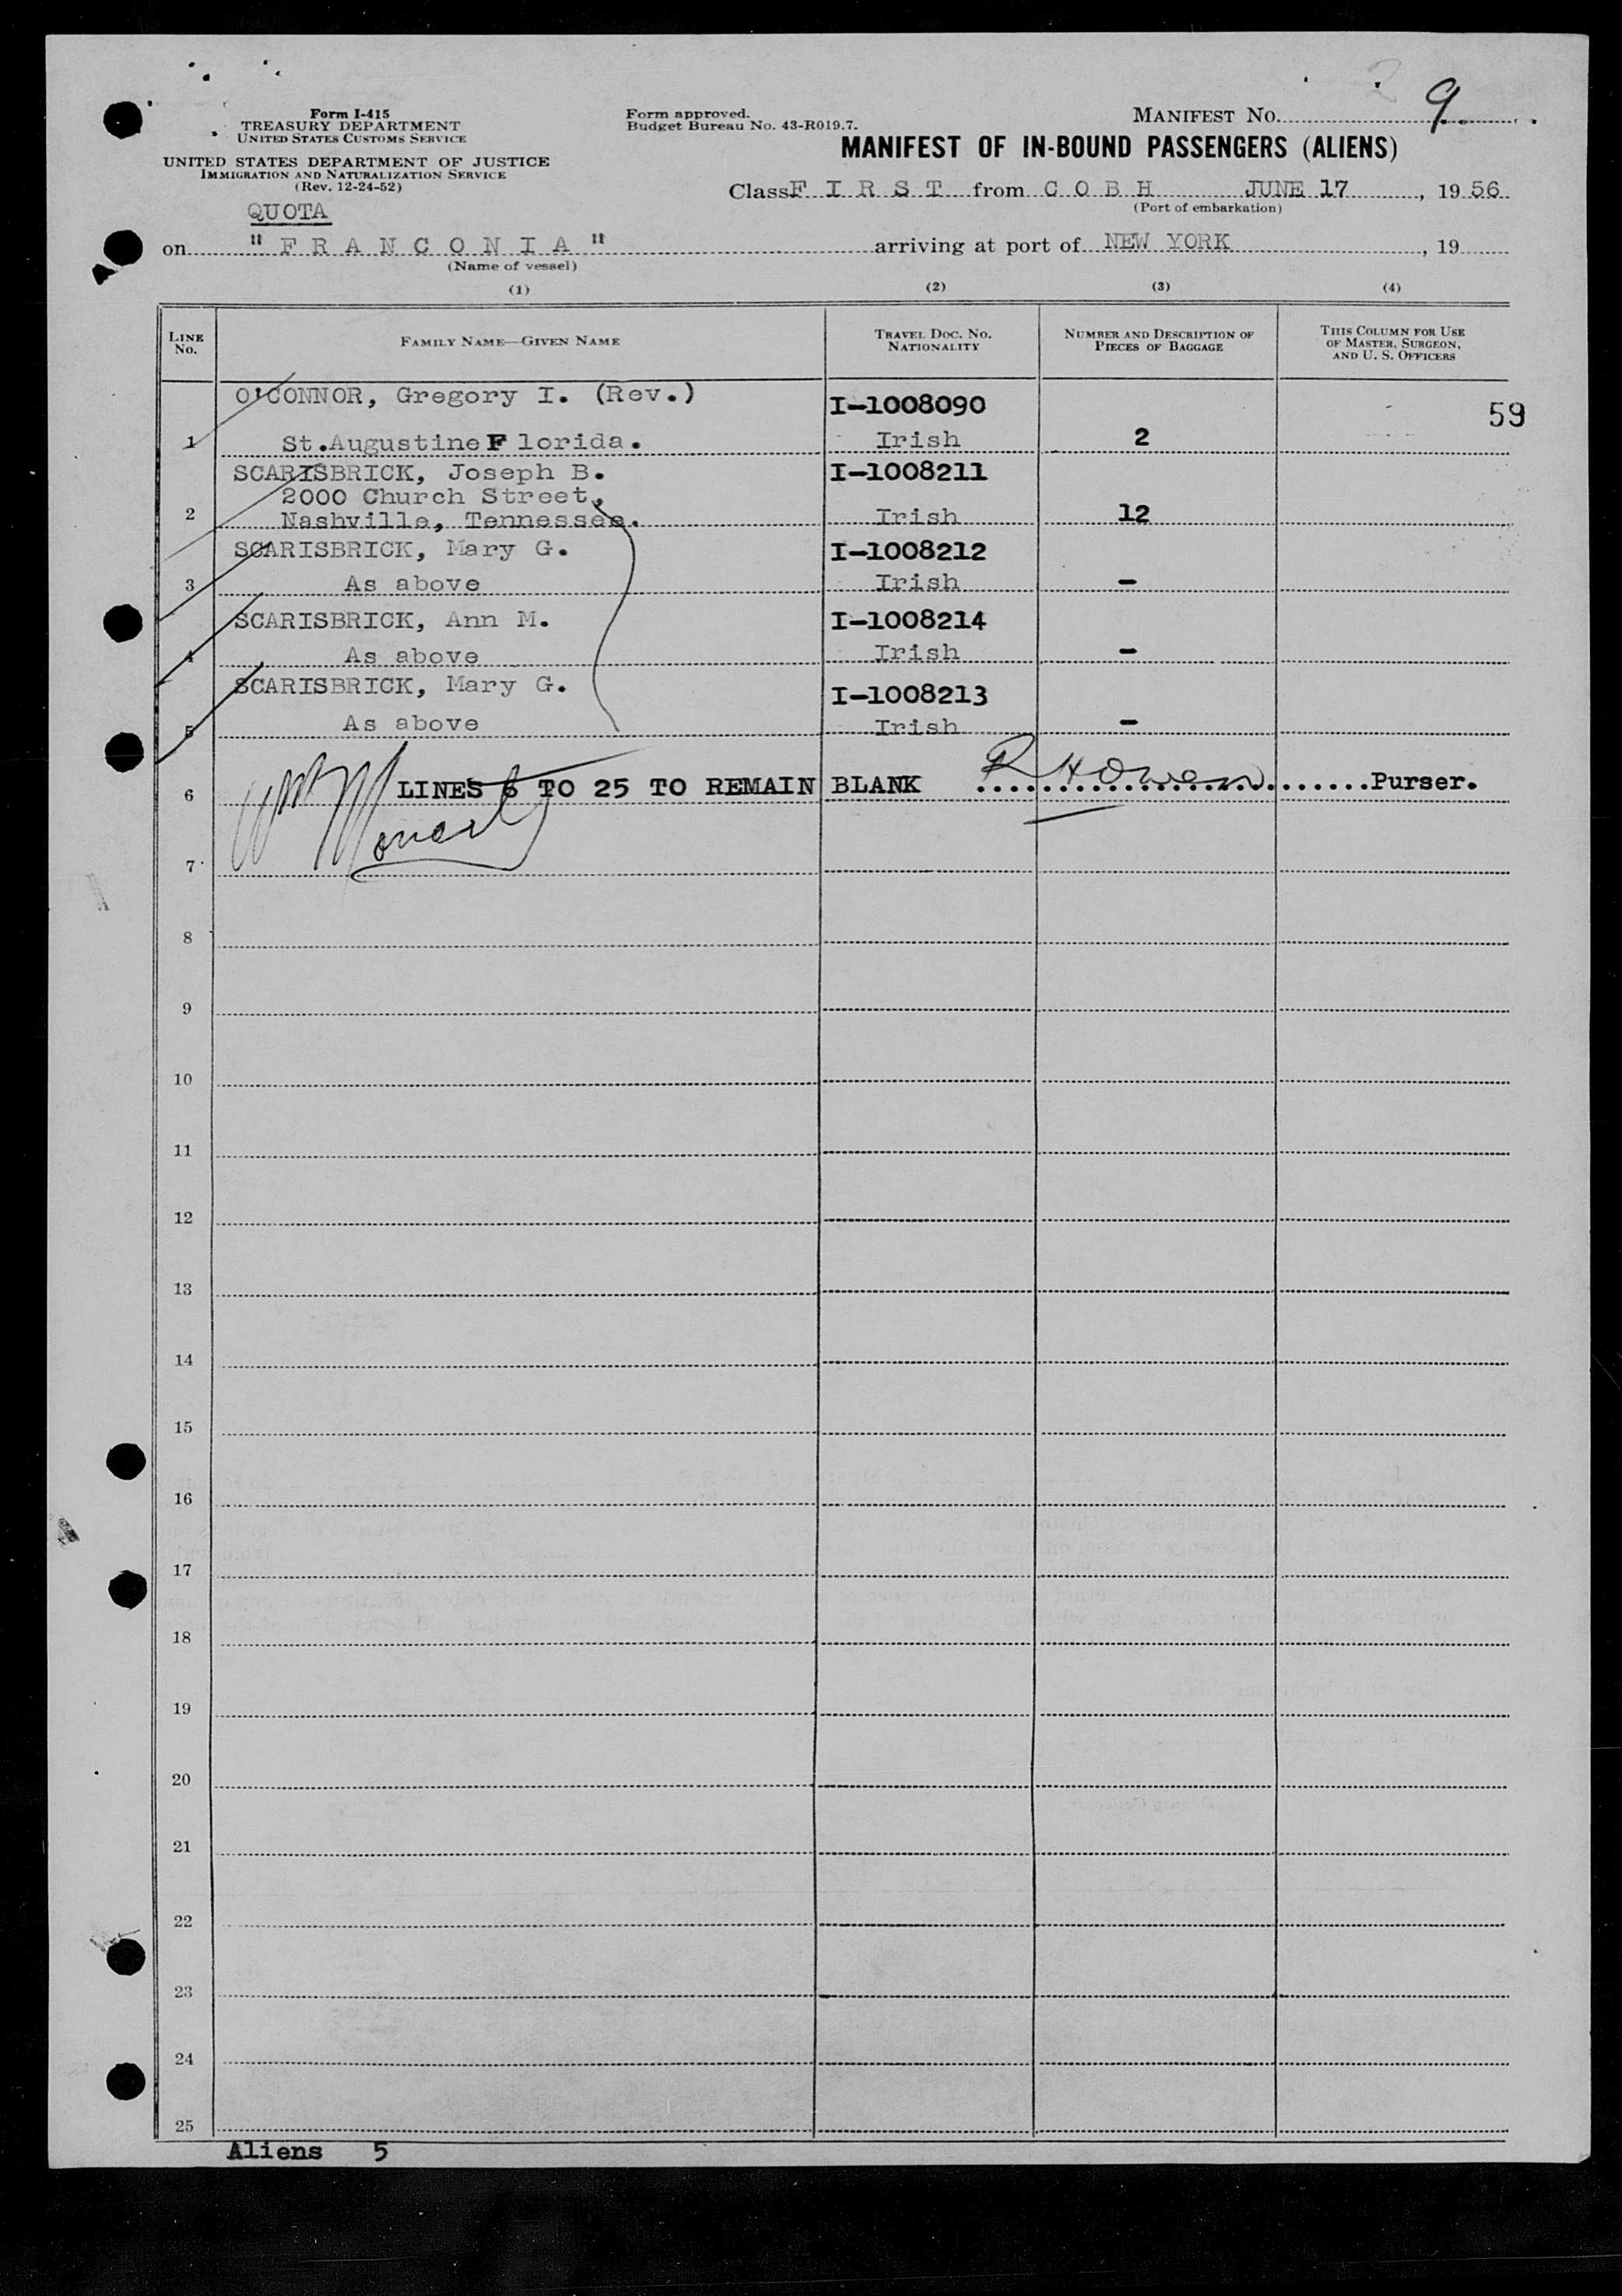 9
Form I-415
TREASURY DEPARTMENT
UNITED STATES CUSTOMS SERVICE
UNITED STATES DEPARTMENT OF JUSTICE
IMMIGRATION AND NATURALIZATION SERVICE
(Rev. 12-24-52)
Form approved.
Budget Bureau No. 43-R019.7.
MANIFEST No.
MANIFEST OF IN-BOUND PASSENGERS (ALIENS)
Class F I R S T from C O B H JUNE 17, 19 56
(Port of embarkation)
QUOTA
on "F R A N C O N I A" arriving at port of NEW YORK, 19
(Name of vessel)
(1) (2) (3) (4)
LINE No. FAMILY NAME—GIVEN NAME TRAVEL DOC. NO. NATIONALITY NUMBER AND DESCRIPTION OF PIECES OF BAGGAGE THIS COLUMN FOR USE OF MASTER, SURGEON, AND U. S. OFFICERS
O'CONNOR, Gregory I. (Rev.) I-1008090 59
1 St.Augustine F lorida. Irish 2
SCARISBRICK, Joseph B. I-1008211
2000 Church Street,
2 Nashville, Tennessee. Irish 12
SCARISBRICK, Mary G. I-1008212
3 As above Irish -
SCARISBRICK, Ann M. I-1008214
4 As above Irish -
SCARISBRICK, Mary G. I-1008213
5 As above Irish -
6 LINES 6 TO 25 TO REMAIN BLANK R H Owen Purser.
7
8
9
10
11
12
13
14
15
16
17
18
19
20
21
22
23
24
25
Aliens 5